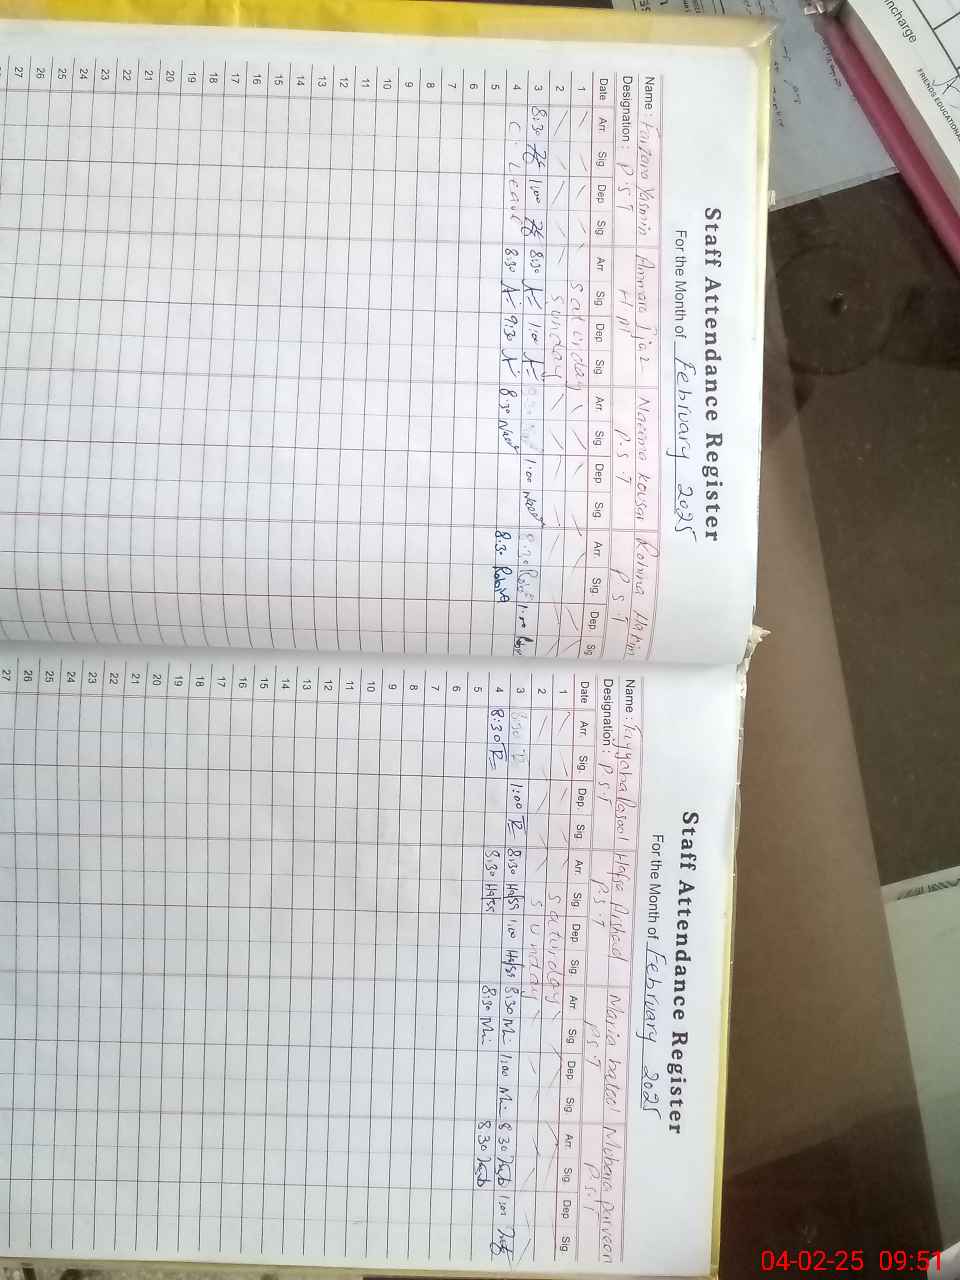 Staff Attendance Register
For the Month of February 2025
Name : Farzana Yasmin Ammara Ijaz Naeema Kousar Robina Hakim
Designation : P.S.T H M P.S.T P S T
Date Arr. Sig Dep Sig Arr. Sig Dep Sig Arr. Sig Dep Sig Arr. Sig Dep. Sig
1 Saturday
2 Sunday
3 8:30 1:00 8:30 1:00 8:30 1:00 8:30 1:00
4 C. Leave 8:30 9:30 8:30 8:30 Robina
5
6
7
8
9
10
11
12
13
14
15
16
17
18
19
20
21
22
23
24
25
26
27
Staff Attendance Register
For the Month of February 2025
Name : Tayyaba Rasool Hafsa Arshad Maria batool Mubara parveen
Designation : P.S.T P.S.T P.S.T P.S.T
Date Arr. Sig. Dep. Sig Arr. Sig Dep Sig Arr. Sig Dep Sig. Arr. Sig Dep Sig
1 Saturday
2 Sunday
3 8:30 1:00 8:30 Hafsa 1:00 Hafsa 8:30 1:00 8:30 1:00
4 8:30 8:30 Hafsa 8:30 8:30
5
6
7
8
9
10
11
12
13
14
15
16
17
18
19
20
21
22
23
24
25
26
27
incharge
FRIENDS EDUCATIONAL
04-02-25 09:51